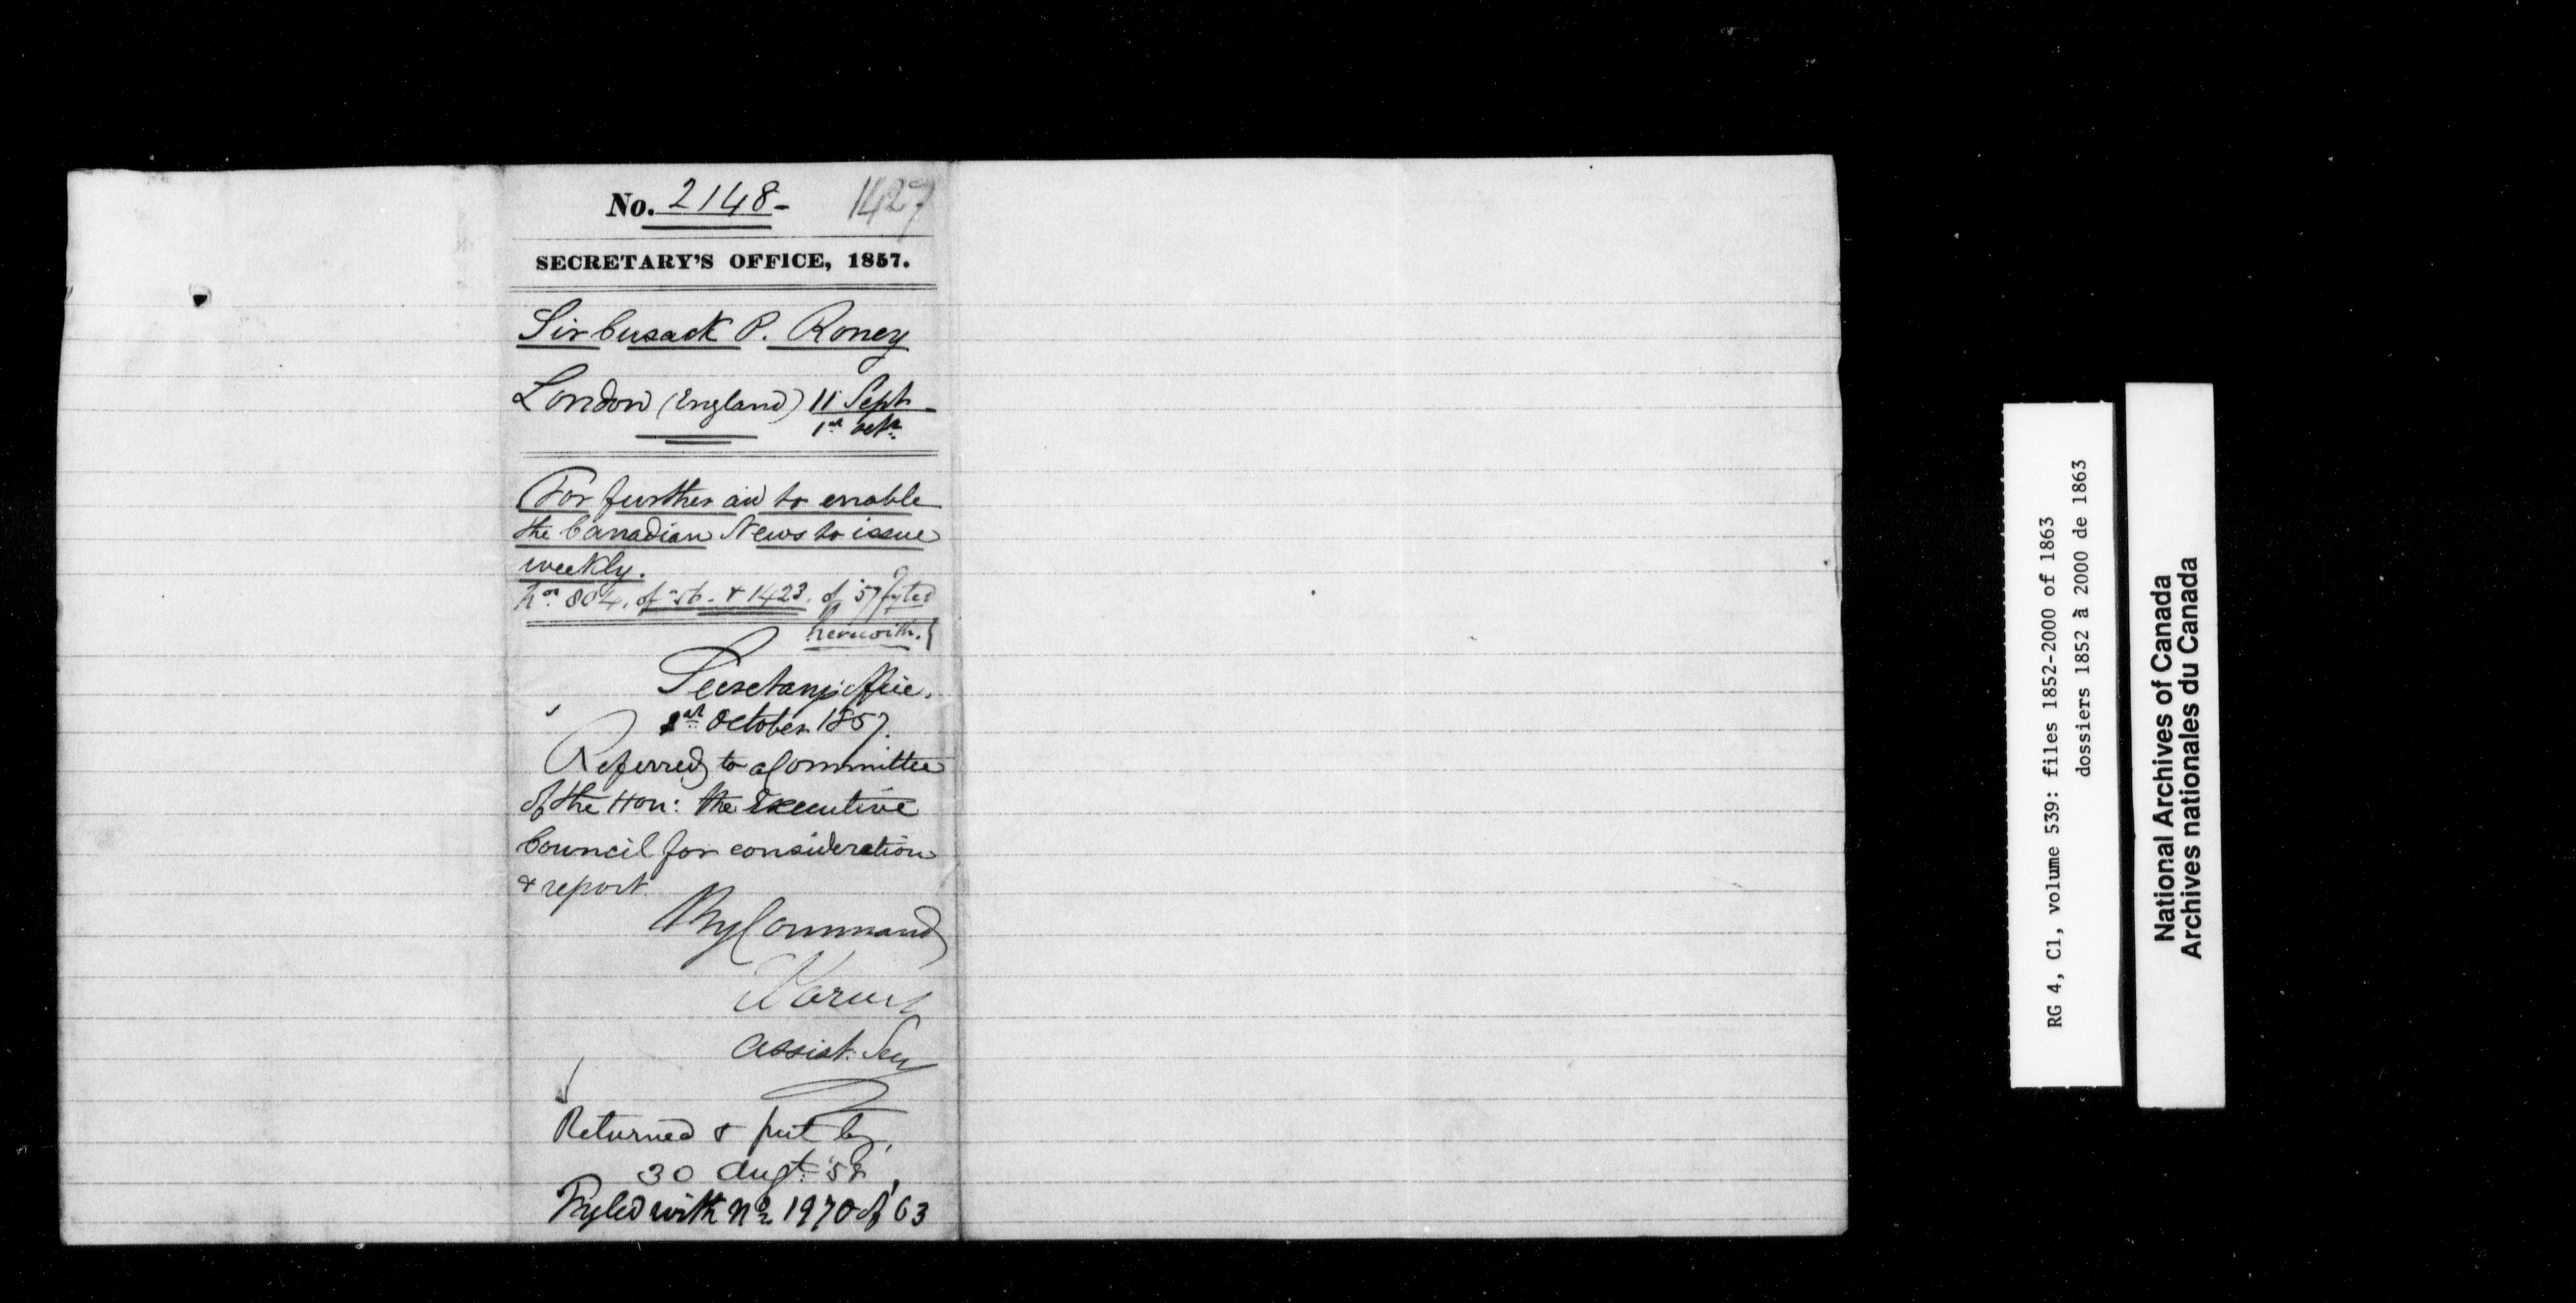 No. 2148- 1427
SECRETARY'S OFFICE, 1857.
Sir Cusack P. Roney
London (England) 11 Sept
1st Octr.
For further aid to enable
the Canadian News to issue
weekly.
Nos. 804. of '56. & 1423. of '57 fyled
herewith.
Secretary's Office.
1st October 1857.
Referred to a Committee
of the Hon: the Executive
Council for consideration
& report.
By Command
Assist. Secy
Returned & put by,
30 Augt. '58,
Fyled with No. 1970 of 63
RG 4, C1, volume 539: files 1852-2000 of 1863
dossiers 1852 à 2000 de 1863
National Archives of Canada
Archives nationales du Canada